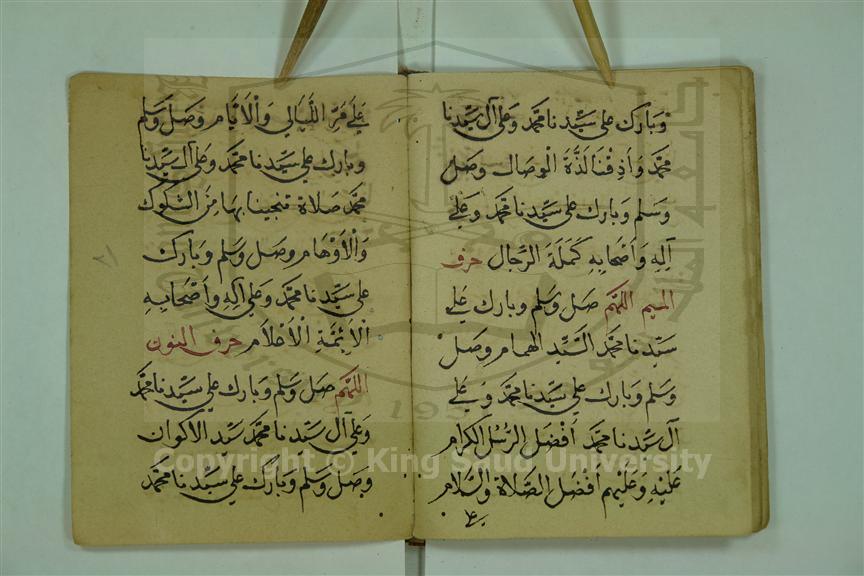 وَبَارِك عَلى سَيِّدِنَا مُحَمَّد وَعَلى آلِ سَيِّدِنَا
مُحَمَّد وَأَذِقْنَا لَذَّةَ الْوِصَال وَصَلِّ
وَسَلِّم وَبَارِك عَلى سَيِّدِنَا مُحَمَّد وَعَلى
آلِهِ وَأَصْحَابِهِ كُمَّلَةَ الرِّجَال حرف
الميم اللهُمَّ صَلِّ وَسَلِّم وَبَارِك عَلى
سَيِّدِنَا مُحَمَّد السَّيِّد الهُمَام وَصَلِّ
وَسَلِّم وَبَارِك عَلى سَيِّدِنَا مُحَمَّد وَعَلى
آلِ سَيِّدِنَا مُحَمَّد أَفْضَلِ الرُّسُلِ الكِرَام
عَلَيْهِ وَعَلَيْهِم أَفْضَلُ الصَّلَاةِ وَالسَّلَام
على
عَلى مَرِّ اللَّيَالِي وَالْأَيَّام وَصَلِّ وَسَلِّم
وَبَارِك عَلى سَيِّدِنَا مُحَمَّد وَعَلى آلِ سَيِّدِنَا
مُحَمَّد صَلَاة تنجينا بِهَا مِنَ الشُّكُوك
وَالْأَوْهَام وَصَلِّ وَسَلِّم وَبَارِك
عَلى سَيِّدِنَا مُحَمَّد وَعَلى آلِهِ وَأَصْحَابِهِ
الْأَئِمَّةِ الْأَعْلَام حرف النون
اللهُمَّ صَلِّ وَسَلِّم وَبَارِك عَلى سَيِّدِنَا مُحَمَّد
وَعَلى آلِ سَيِّدِنَا مُحَمَّد سَيِّدِ الأَكْوَان
وَصَلِّ وَسَلِّم وَبَارِك عَلى سَيِّدِنَا مُحَمَّد
٢١
Copyright © King Saud University
195